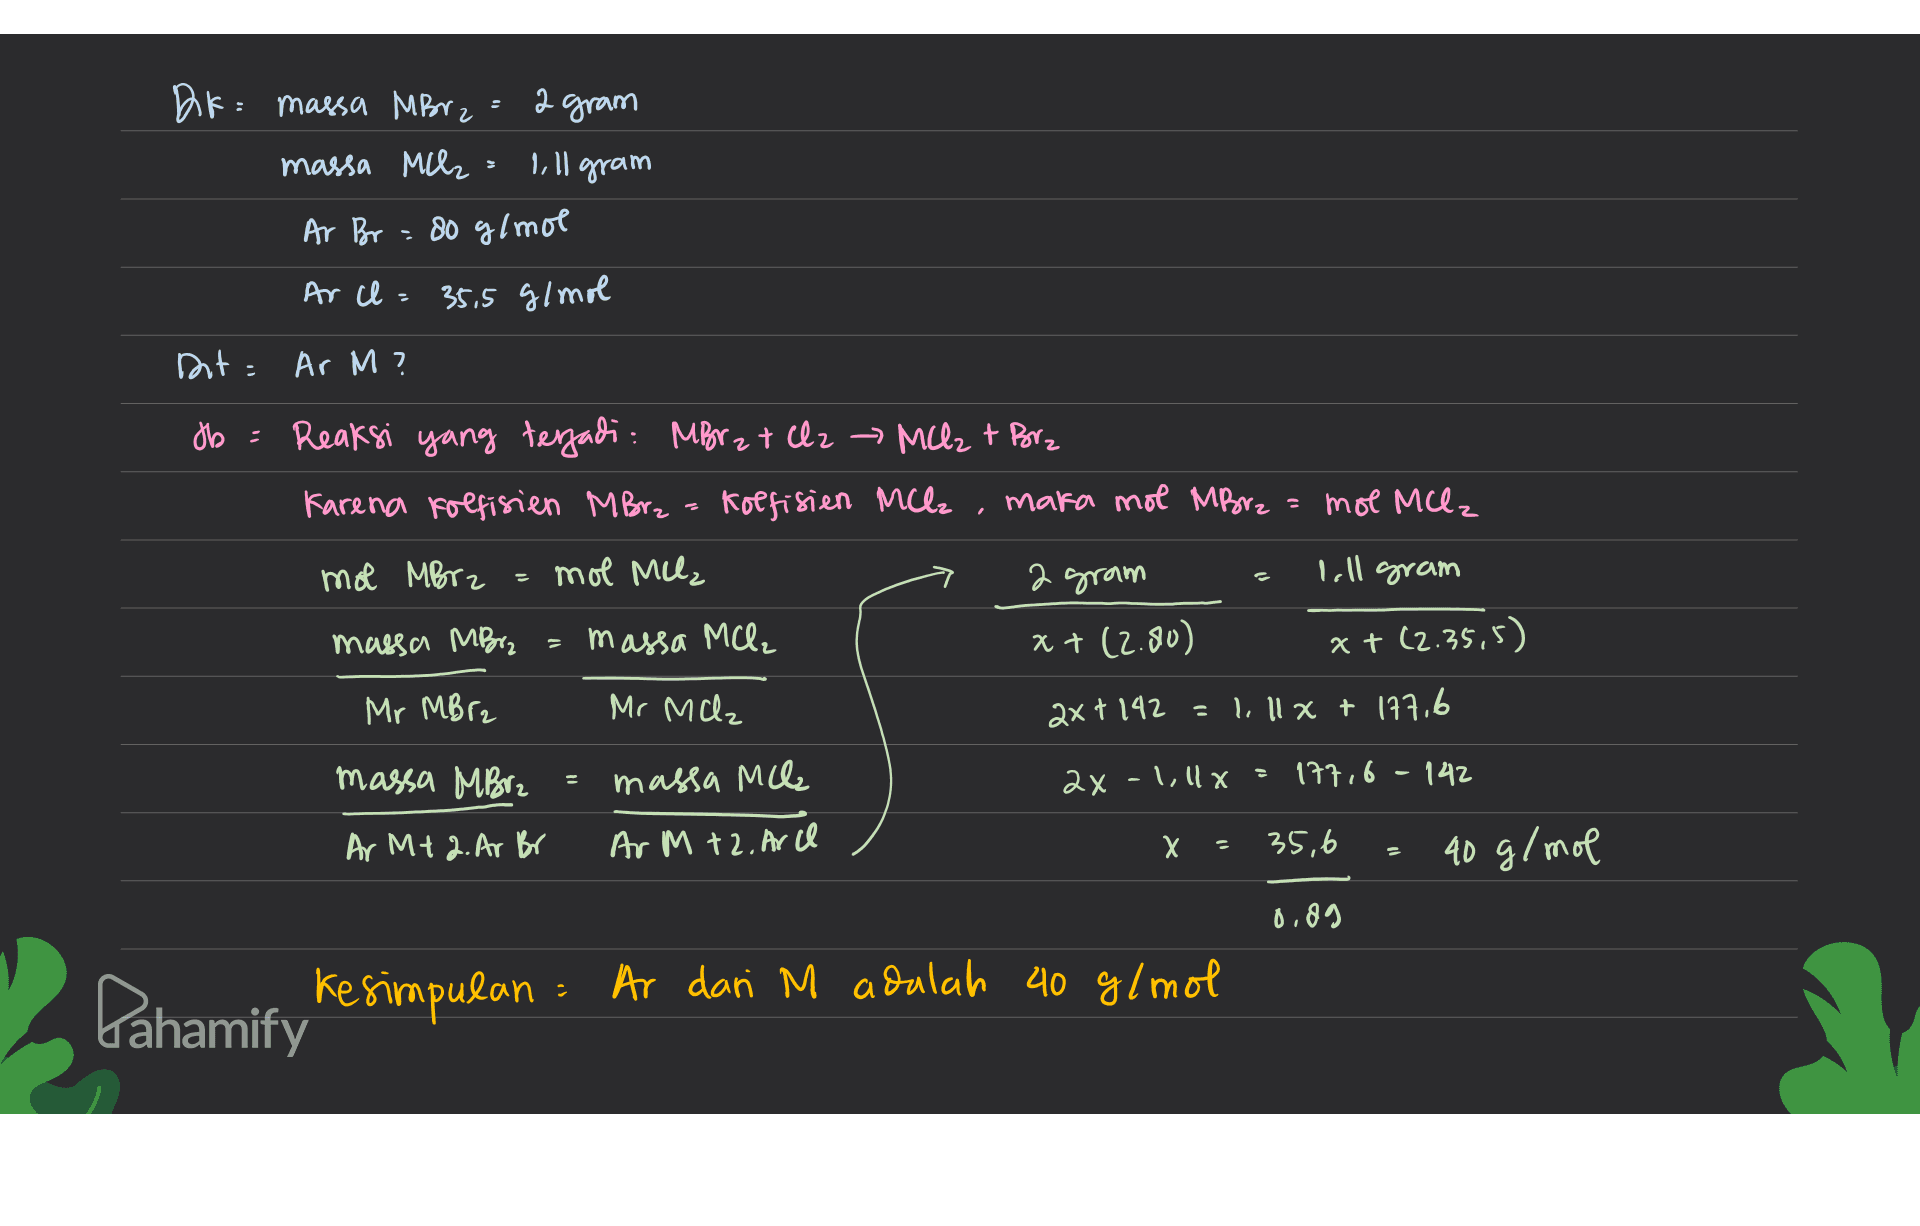 Dik = massa MBr₂ = 2 gram
massa MCl₂ = 1,11 gram
Ar Br = 80 g/mol
Ar Cl = 35,5 g/mol
Dit = Ar M ?
Jb = Reaksi yang terjadi : MBr₂ + Cl₂ → MCl₂ + Br₂
Karena koefisien MBr₂ = koefisien MCl₂ , maka mol MBr₂ = mol MCl₂
mol MBr₂ = mol MCl₂
massa MBr₂ = massa MCl₂
Mr MBr₂ Mr MCl₂
massa MBr₂ = massa MCl₂
Ar M + 2. Ar Br Ar M + 2. Ar Cl
2 gram = 1,11 gram
x + (2.80) x + (2.35,5)
2x + 142 = 1,11 x + 177,6
2x - 1,11 x = 177,6 - 142
x = 35,6 = 40 g/mol
0,89
Kesimpulan = Ar dari M adalah 40 g/mol
Pahamify